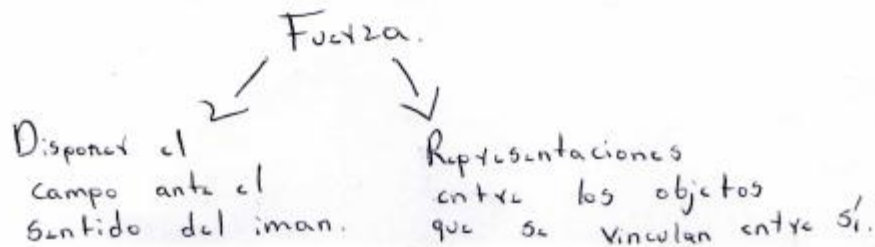 Fuerza.
Disponer el
campo ante el
sentido del iman.
Representaciones
entre los objetos
que se vinculan entre sí.